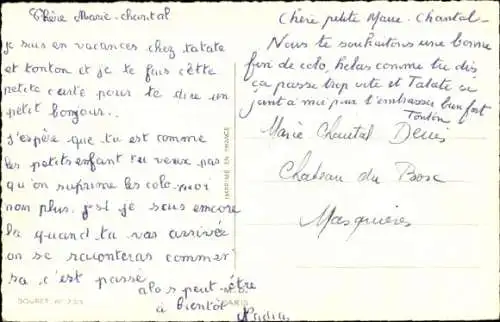 Chère Marie-chantal
je suis en vacances chez tatate
et tonton et je te fais cette
petite carte pour te dire un
petit bonjour..
j'espère que tu est comme
les petits enfant tu veux pas
qu'on suprime les colo. moi
non plus. je serais encore
la quand tu vas arrivée
on se raconteras commer
sa c'est passé
alors peut-être
à bientôt
Nadia
Chère petite Marie-Chantal
Nous te souhaitons une bonne
fin de colo, helas comme tu dis
ça passe trop vite et Tatate si
joint à moi pour t'embrasser bien fort
Tonton
Marie Chantal Denis
Chateau du Bosc
Masquières
IMPRIMÉ EN FRANCE
PARIS